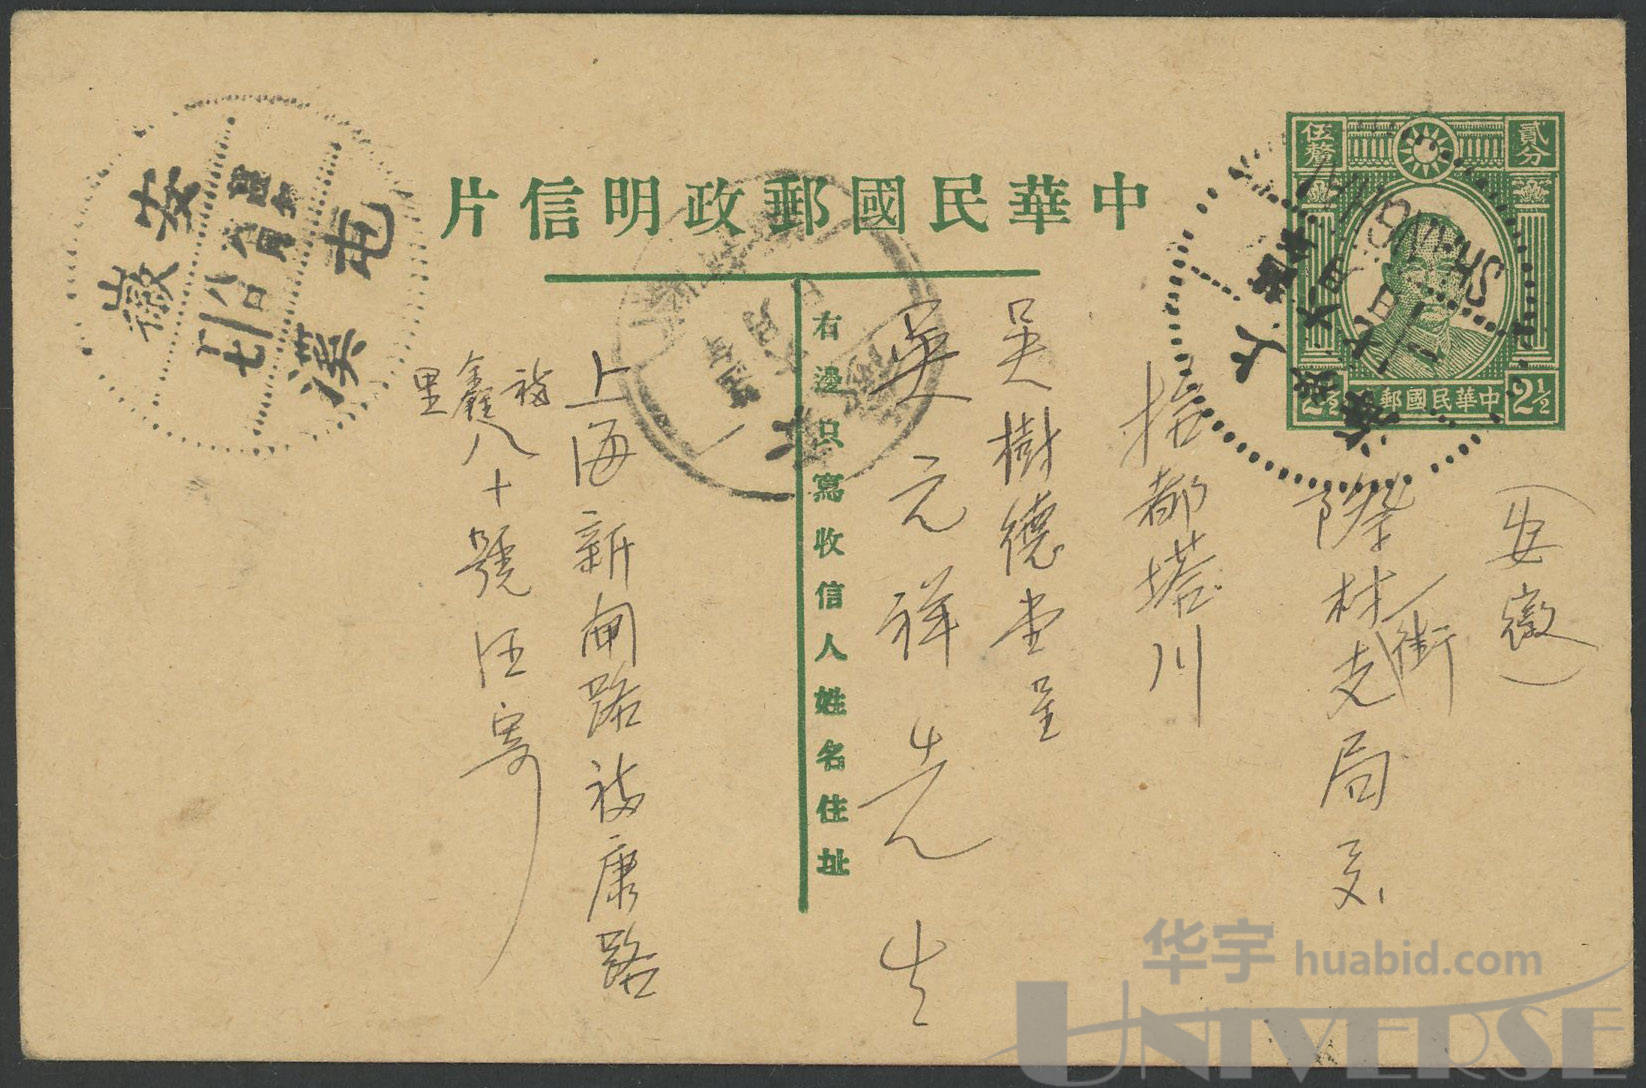 中華民國郵政明信片
伍釐
貳分
中華民國郵
2½
2½
SHANGHAI
上海
安徽
屯溪
八日
七
（安徽）
際村街
支局交
拾都塔川
吳樹德堂呈
吳元祥先生
右邊只寫收信人姓名住址
上海新闸路福康路
福鑫里
八十號汪寄
华宇 huabid.com
UNIVERSE